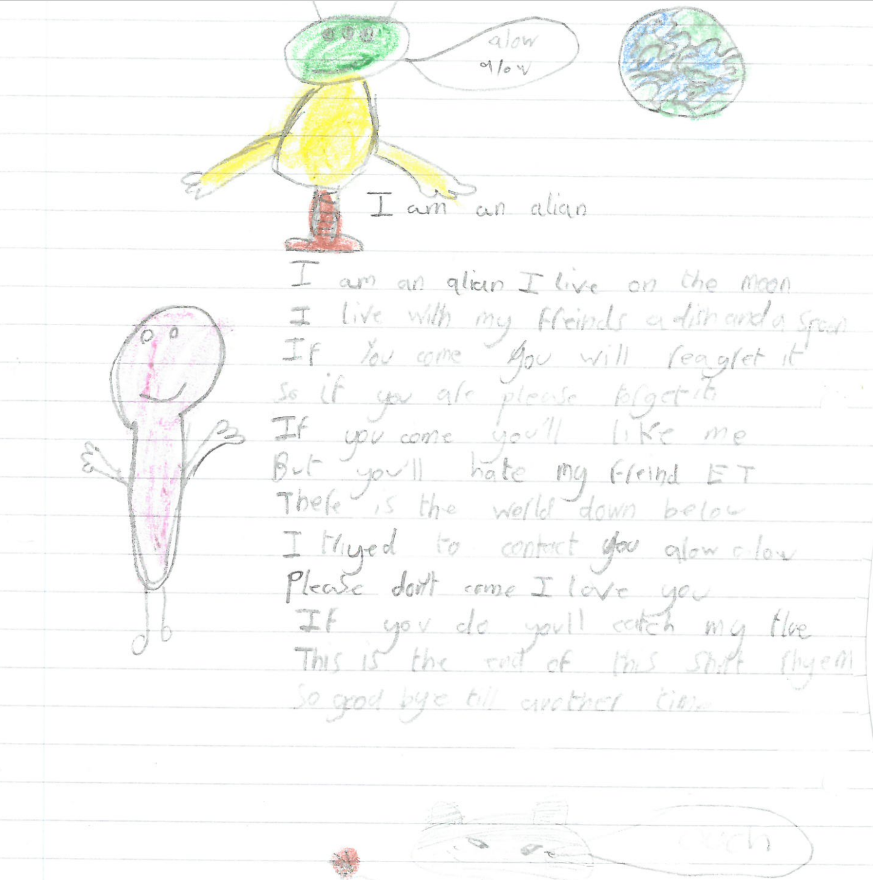 alow
alow
I am an alian
I am an alian I live on the moon
I live with my freinds a dish and a spoon
If You come you will reagret it
So if you are please forget it
If you come you'll like me
But you'll hate my freind ET
There is the world down below
I triyed to contact you alow alow
Please don't come I love you
If you do you'll catch my flue
This is the end of this short rhyem
So good bye till another time